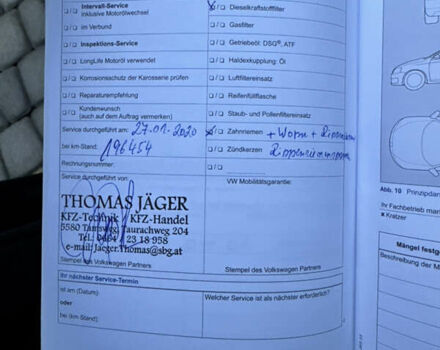 Intervall-Service
Inklusive Motorölwechsel
☐/☐ im Verbund
☐/☐ Inspektions-Service
☐/☐ LongLife Motoröl verwendet
☐/☐ Korrosionsschutz der Karosserie prüfen
☐/☐ Reparaturempfehlung
☐/☐ Kundenwunsch
(auch auf dem Auftrag vermerken)
Service durchgeführt am: 27.01.2020
bei km-Stand: 196454
Rechnungsnummer:
Service durchgeführt von:
THOMAS JÄGER
KFZ-Technik KFZ-Handel
5580 Tamsweg, Taurachweg 204
Tel.: 23 18 958
e-mail: Jaeger.Thomas@sbg.at
Stempel des Volkswagen Partners
Ihr nächster Service-Termin
ist am (Datum):
oder
bei (km-Stand):
Dieselkraftstofffilter
☐/☐ Gasfilter
☐/☐ Getriebeöl: DSG®, ATF
☐/☐ Haldexkupplung: Öl
☐/☐ Luftfiltereinsatz
☐/☐ Reifenfüllflasche
☐/☐ Staub- und Pollenfiltereinsatz
Zahnriemen
☐/☐ Zündkerzen
☐/☐
VW Mobilitätsgarantie:
Stempel des Volkswagen Partners
Welcher Service ist als nächster erforderlich?
Abb. 10 Prinzipdar
Ihr Fachbetrieb mar
x Kratzer
Mängel festge
Beschreibung der M